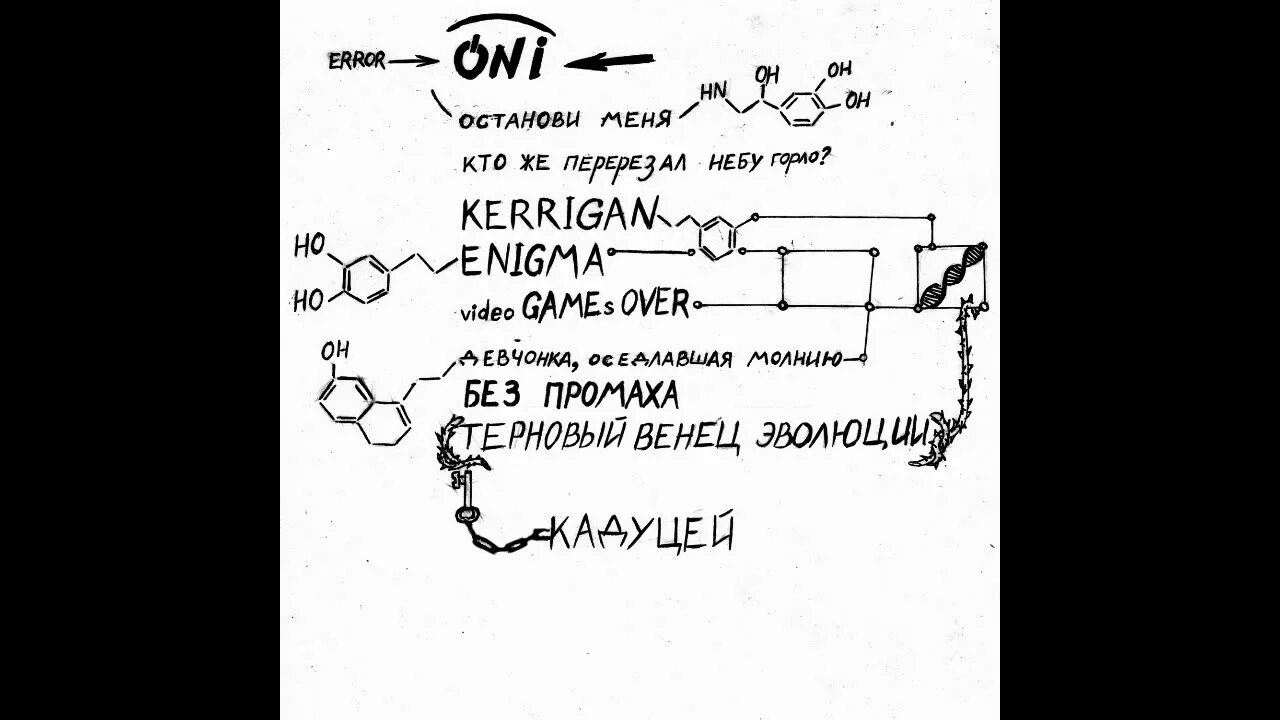 ERROR ONi
HN OH OH OH
ОСТАНОВИ МЕНЯ
КТО ЖЕ ПЕРЕРЕЗАЛ НЕБУ ГОРЛО?
KERRIGAN
HO ENIGMA
HO video GAMEs OVER
OH ДЕВЧОНКА, ОСЕДЛАВШАЯ МОЛНИЮ
БЕЗ ПРОМАХА
ТЕРНОВЫЙ ВЕНЕЦ ЭВОЛЮЦИИ
КАДУЦЕЙ